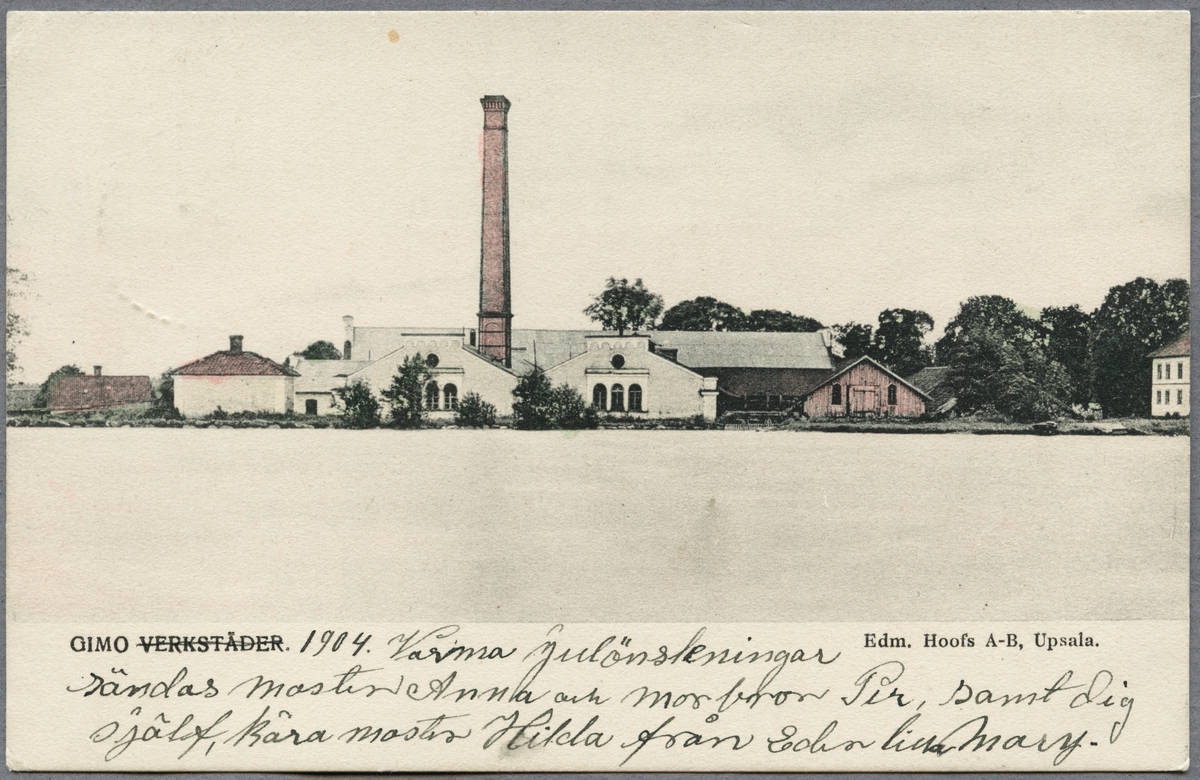 GIMO VERKSTÄDER. 1904. Varma Julönskningar
Edm. Hoofs A-B, Upsala.
sändas moster Anna och morbror Per, samt dig
själf, kära moster Hilda från Eder lilla Mary.